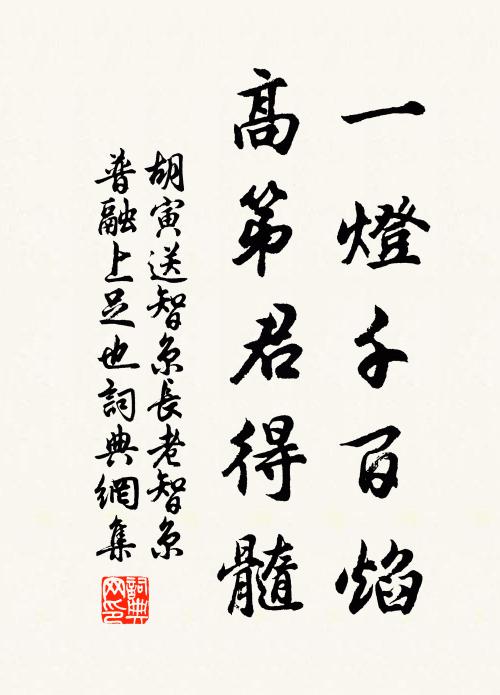 一燈千百焰
高第君得髓
胡寅送智京長老智京
普融上足也詞典網集
詞典網印